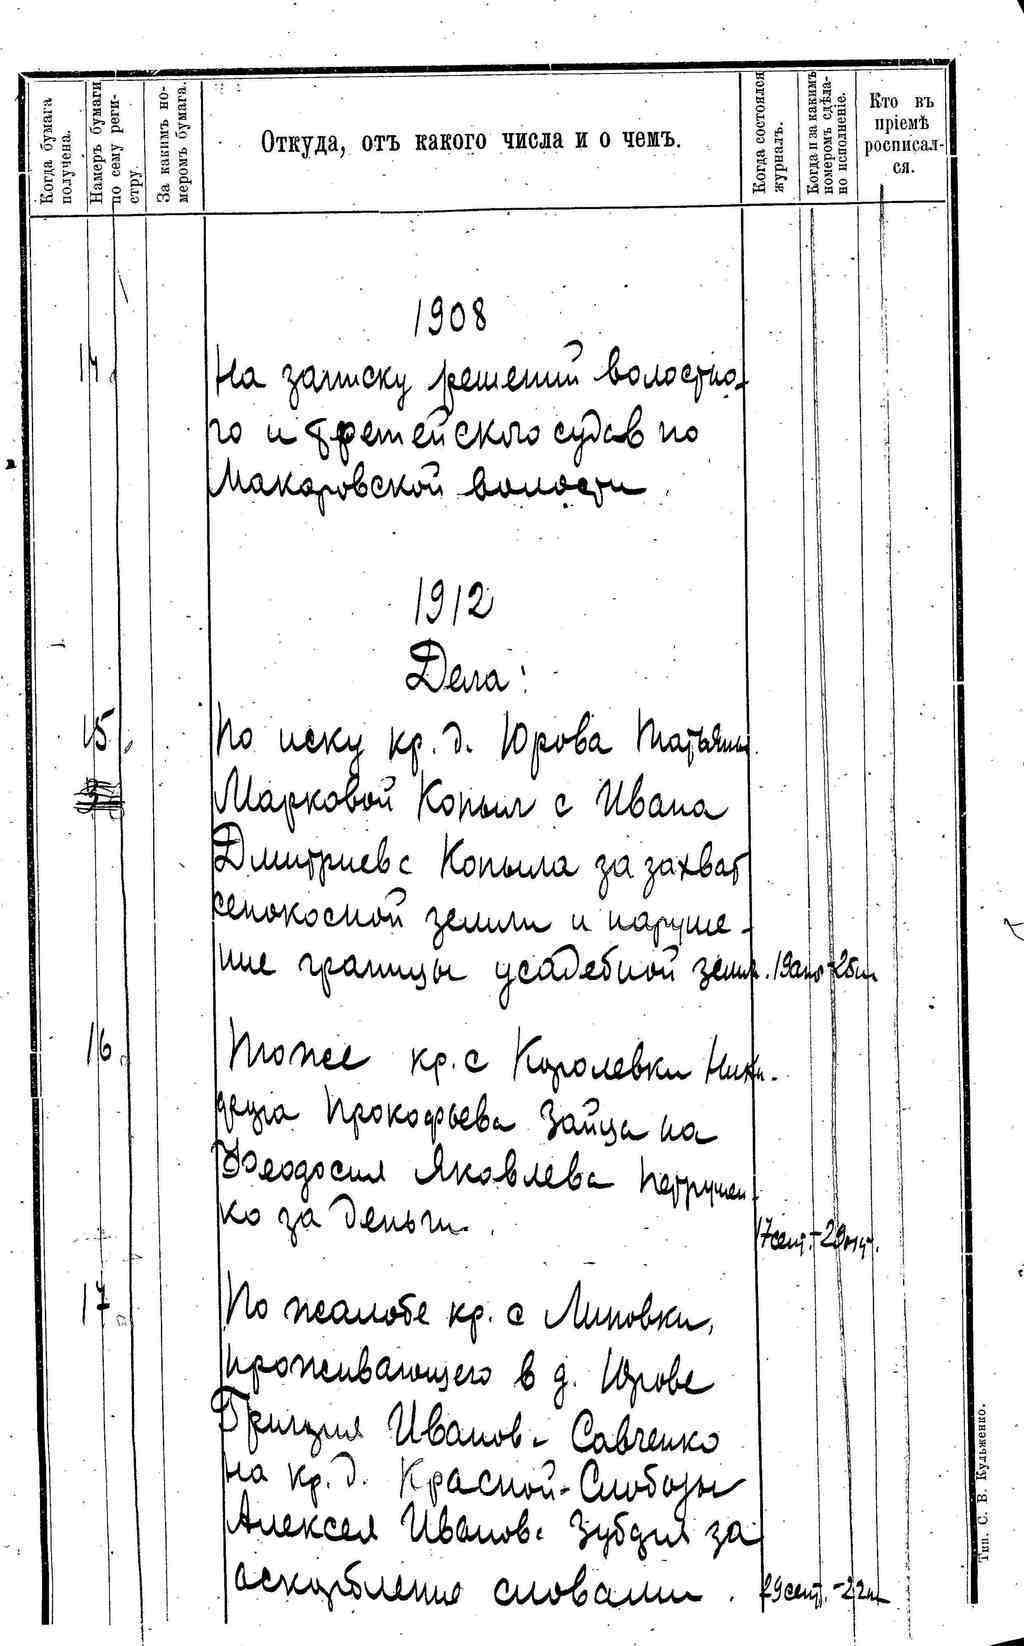 Когда бумага получена.
Намеръ бумаги по сему регистру.
За какимъ номеромъ бумага.
Откуда, отъ какого числа и о чемъ.
Когда состоялся журналъ.
Когда и за какимъ номеромъ сдѣлано исполненіе.
Кто въ пріемѣ росписался.
1908
14
На записку решений волостно-
го и третейского судов по
Макаровской волости
1912
Дела:
15
По иску кр. д. Юрова Татьяны
Марковой Копыл с Ивана
Дмитриева Копыла за захват
сенокосной земли и наруше-
ние границы усадебной земли. 19
16
Тоже кр. с Королевки
Прокофьева Зайца на
Феодосия Яковлева Петрушен-
ко за деньги.
17 сент. - 29
17
По жалобе кр. с Липовки,
проживающего в д. Юрове
Григория Иванова Савченко
на кр. д. Красной-Слободы
Алексея Иванова за
оскорбление словами. 29 сент. - 22
Тип. С. В. Кульженко.